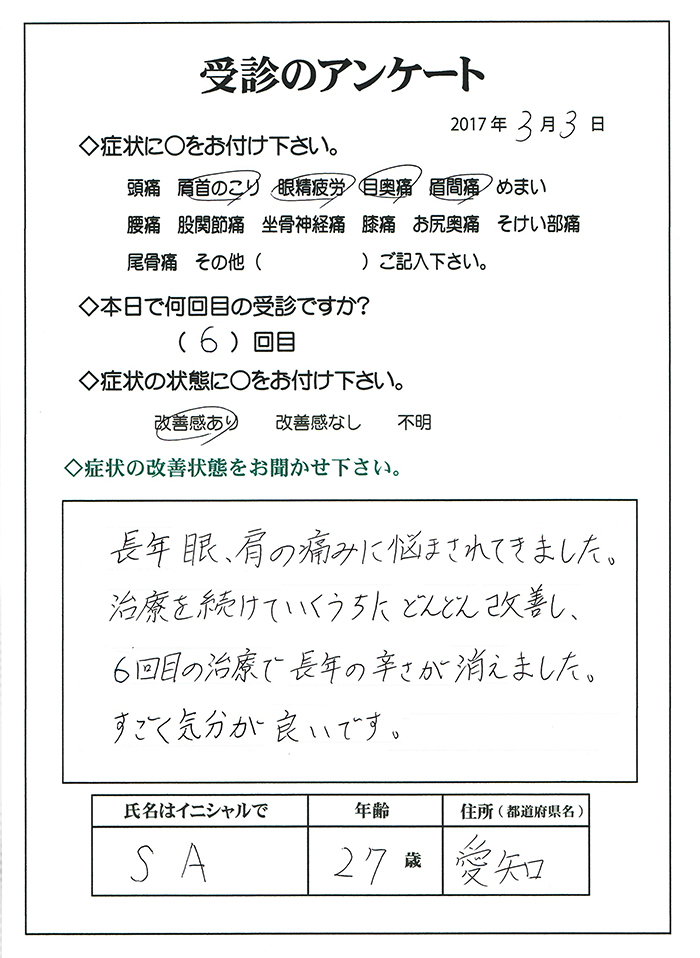 受診のアンケート
2017年 3月 3日
◇症状に〇をお付け下さい。
頭痛 肩首のこり 眼精疲労 目奥痛 眉間痛 めまい
腰痛 股関節痛 坐骨神経痛 膝痛 お尻奥痛 そけい部痛
尾骨痛 その他( )ご記入下さい。
◇本日で何回目の受診ですか?
( 6 )回目
◇症状の状態に〇をお付け下さい。
改善感あり 改善感なし 不明
◇症状の改善状態をお聞かせ下さい。
長年 眼、肩の痛みに悩まされてきました。
治療を続けていくうちに どんどん改善し、
6回目の治療で 長年の辛さが 消えました。
すごく気分が 良いです。
氏名はイニシャルで 年齢 住所(都道府県名)
S A 27歳 愛知